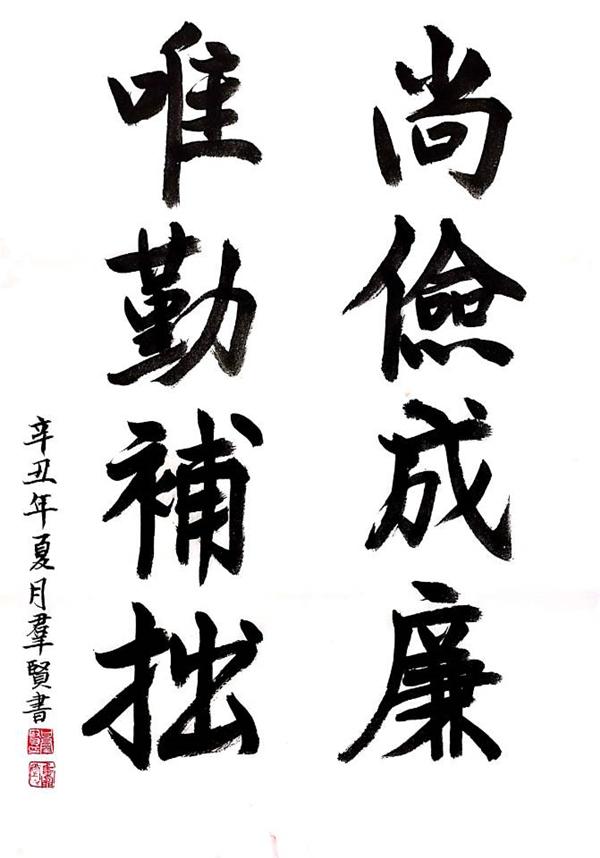 尚儉成廉
唯勤補拙
辛丑年夏月羣賢書